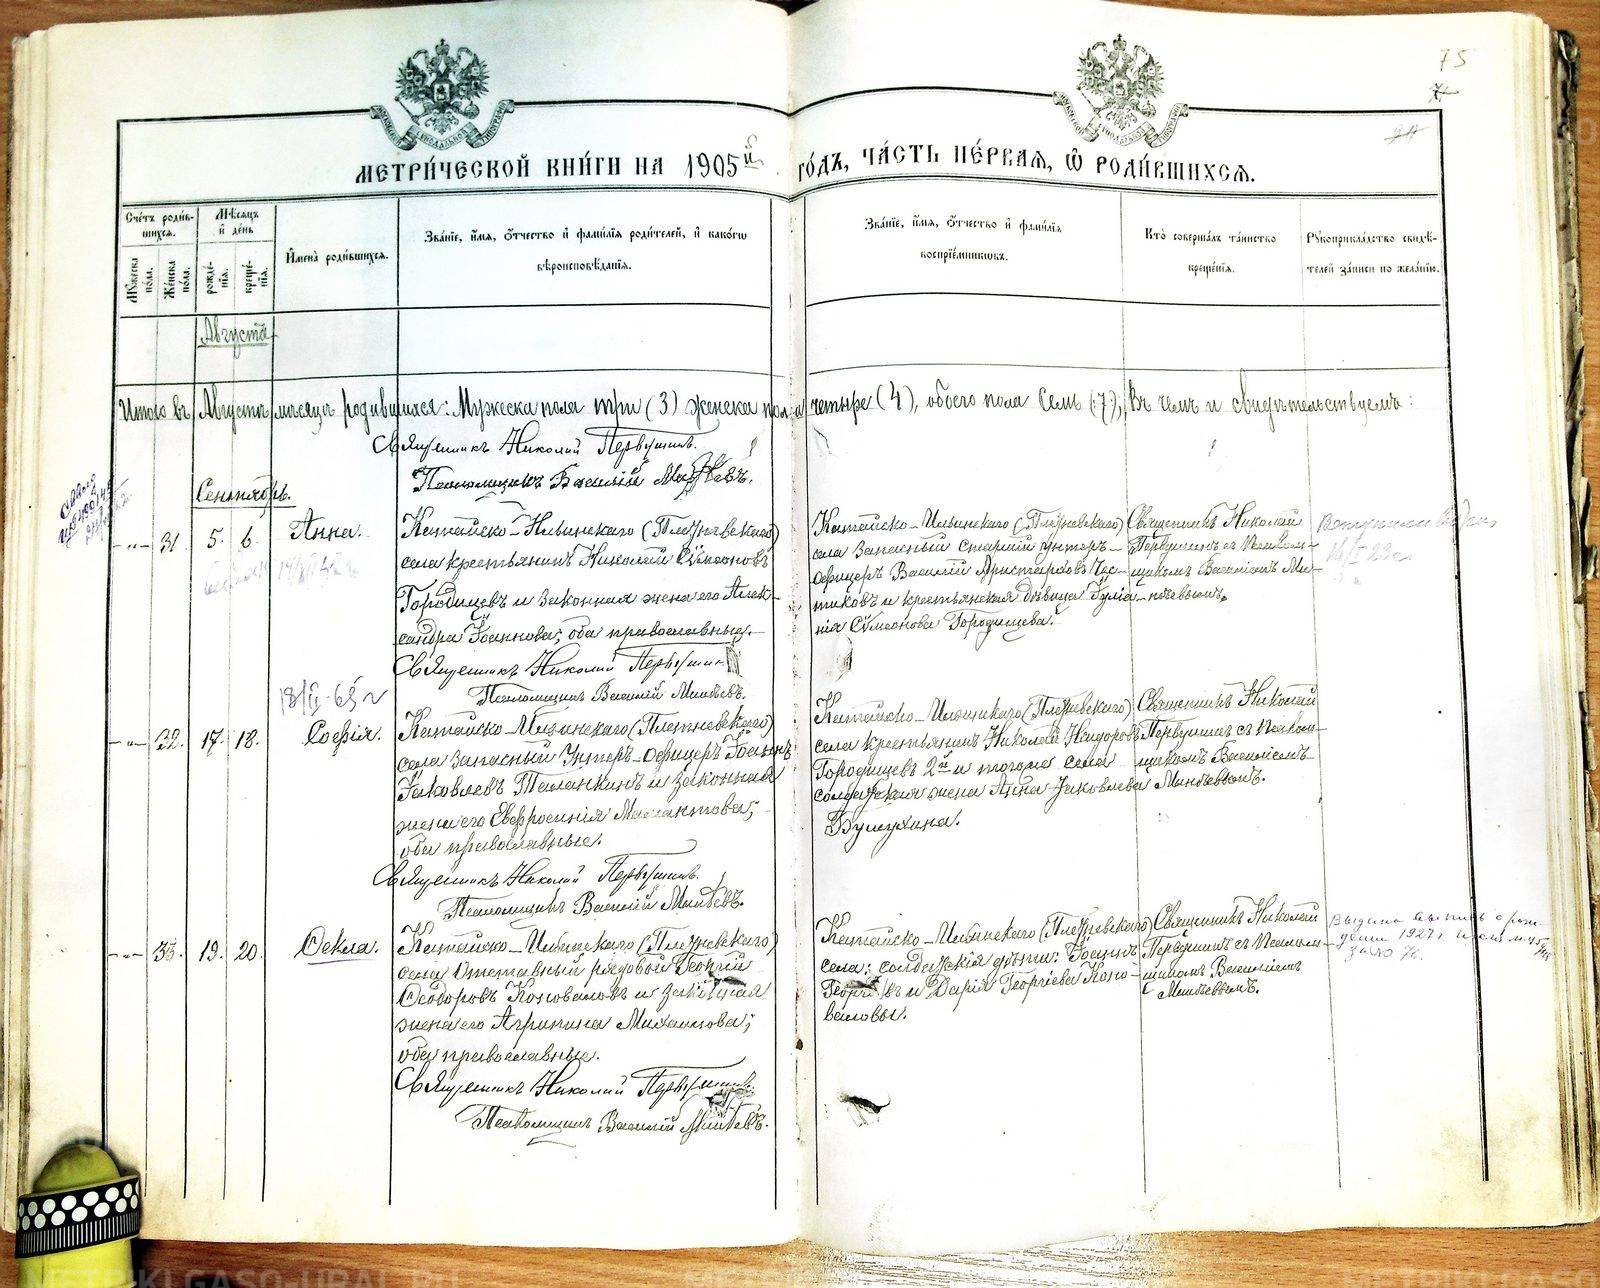 75
МЕТРИ́ЧЕСКОЙ КНИ́ГИ НА 1905й ГО́ДЪ, ЧА́СТЬ ПЕ́РВАЯ, Ѡ҆ РОДИ́ВШИХСЯ.
Сче́тъ роди́в-
шихся.
Мꙋ́жеска по́ла.
Же́нска по́ла.
Мѣ́сяцъ
и҆ де́нь
рожде́-
нїѧ.
креще́-
нїѧ.
И҆мена̀ роди́вшихся.
Зва́нїе, и҆́мя, ѻ҆́тчество и҆ фами́лїя роди́телей, и҆ како́гѡ
вѣроисповѣ́данїя.
Зва́нїе, и҆́мя, ѻ҆́тчество и҆ фами́лїя
воспрїе́мникѡвъ.
Кто̀ соверша́лъ та́инство
креще́нїя.
Рꙋкоприкла́дство свидѣ́-
телей за́писи по жела́нїю.
Августа
Итого въ Августѣ мѣсяцѣ родившихся: Мужеска пола три (3) женска пола четыре (4), обоего пола семь (7), въ чемъ и свидѣтельствуемъ:
Священникъ Николай Первушинъ.
Псаломщикъ Василій
Сентябрь.
-"- 31. 5. 6. Анна.
Катайско-Ильинскаго (Плетневскаго)
села крестьянинъ Николай Сѵмеоновъ
Городищевъ и законная жена его Алек-
сандра Іоаннова; оба православные.
Священникъ Николай Первушин
Псаломщикъ Василій Минѣевъ.
Катайско-Ильинскаго (Плетневскаго)
села Запасный старшій унтер-
офицеръ Василій Аристарховъ
тиковъ и крестьянская дѣвица Іулiа-
нія Сѵмеонова Городищева.
Священникъ Николай
Первушинъ съ Псалом-
щикомъ Василіемъ Ми-
нѣевымъ.
18/II-65 г
-"- 32. 17. 18. Софія.
Катайско-Ильинскаго (Плетневскаго)
села Запасный Унтеръ-Офицеръ Іоаннъ
Іаковлевъ Таланкинъ и законная
жена его Евфросинія
оба православные.
Священникъ Николай Первушинъ.
Псаломщикъ Василій Минѣевъ.
Катайско-Ильинскаго (Плетневскаго)
села крестьянинъ Николай Исидоровъ
Городищевъ 2й и тогоже села
солдатская жена Анна Іаковлева
Бушухина.
Священникъ Николай
Первушинъ съ Псалом-
щикомъ Василіемъ
Минѣевымъ.
-"- 33. 19. 20. Ѳекла.
Катайско-Ильинскаго (Плетневскаго)
села Отставный рядовой Георгій
Ѳеодоровъ Коноваловъ и законная
жена его Агрипина Михаилова;
оба православные.
Священникъ Николай Первушинъ
Псаломщикъ Василій Минѣевъ.
Катайско-Ильинскаго (Плетневскаго)
села: солдатскія дѣти: Іоаннъ
Георгіевъ и Дарія Георгіева Коно-
валовы.
Священникъ Николай
Первушинъ съ Псалом-
щикомъ Василіемъ
Минѣевымъ.
Выдана выпись о рож-
дении 1927 г.